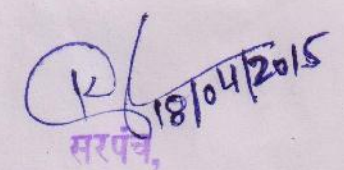 18/04/2015
सरपंच,